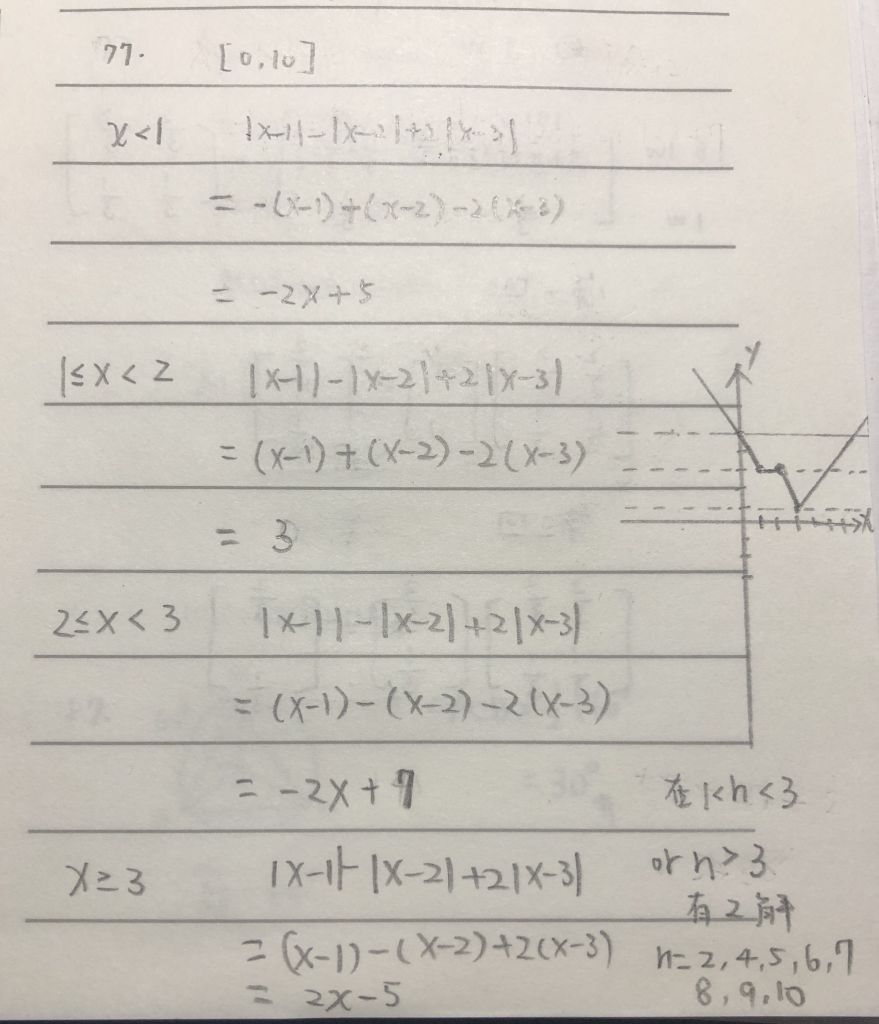 77. [0,10]
x<1 |x-1|-|x-2|+2|x-3|
= -(x-1)+(x-2)-2(x-3)
= -2x+5
1≤x<2 |x-1|-|x-2|+2|x-3|
= (x-1)+(x-2)-2(x-3)
= 3
2≤x<3 |x-1|-|x-2|+2|x-3|
= (x-1)-(x-2)-2(x-3)
= -2x+7
x≥3 |x-1|-|x-2|+2|x-3|
= (x-1)-(x-2)+2(x-3)
= 2x-5
y
x
在1<n<3
or n>3
有2解
n=2,4,5,6,7
8,9,10